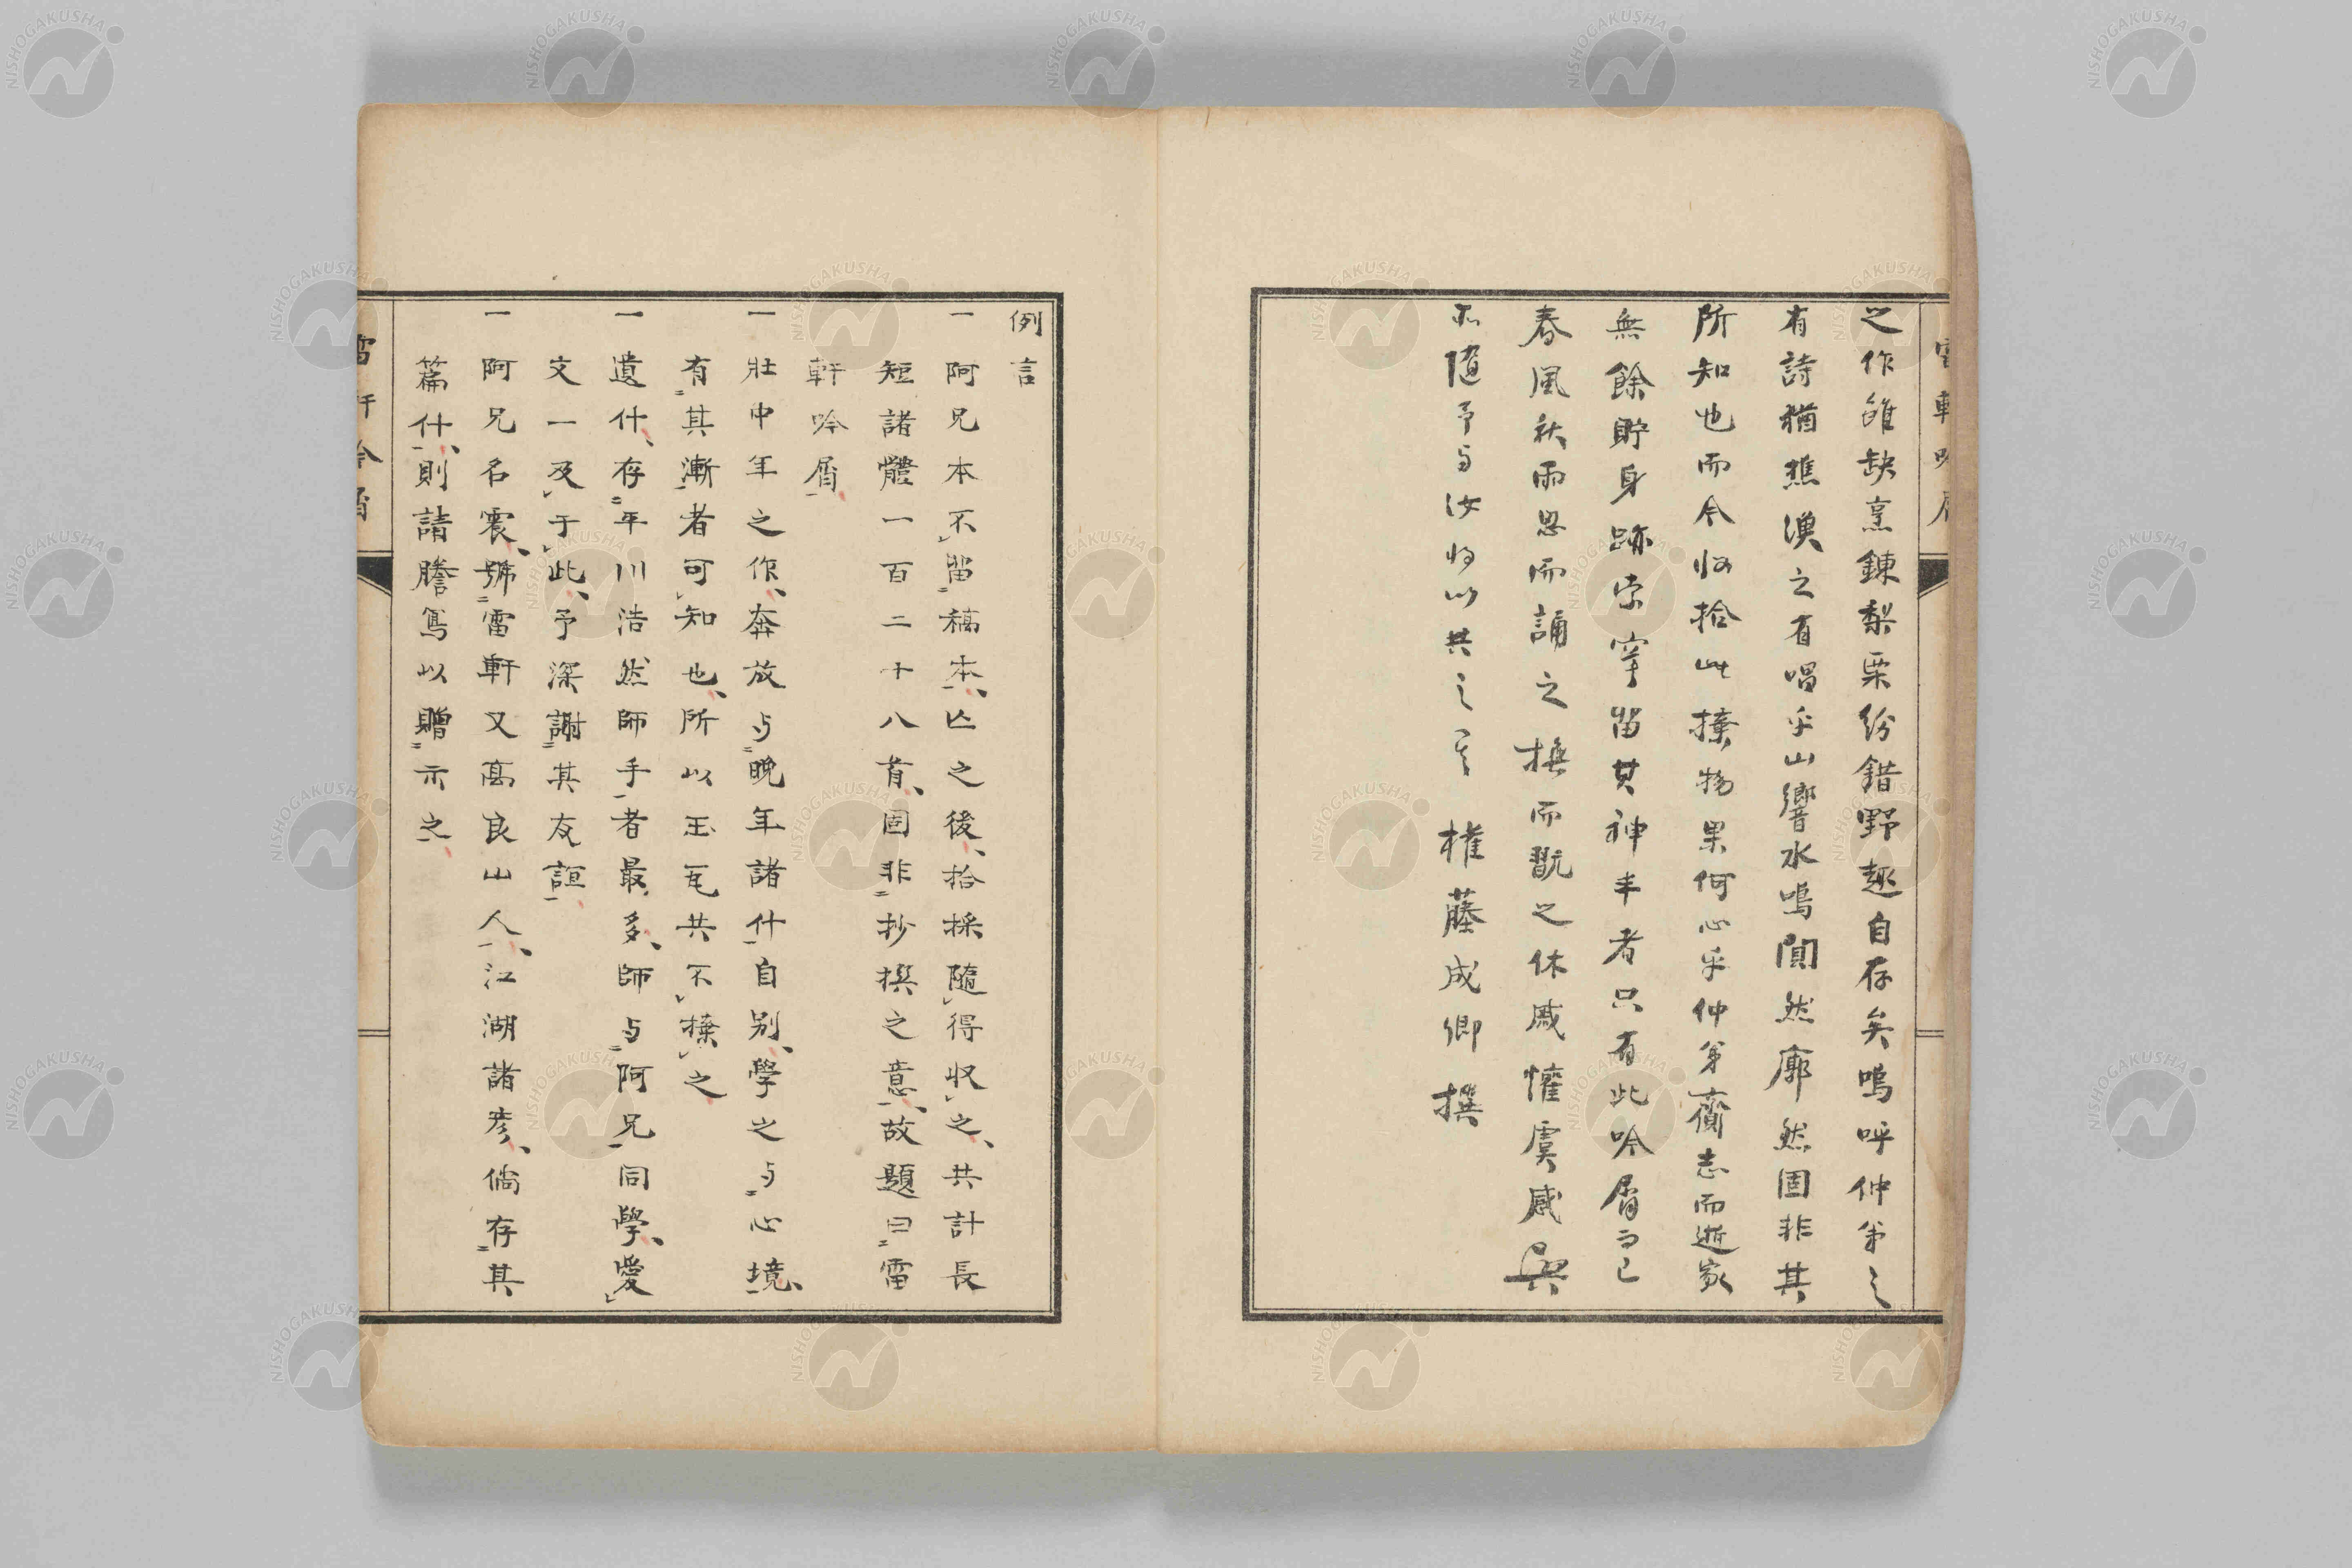 之作雖缺烹錬梨栗紛錯野趣自存矣嗚呼仲弟之
有詩猶樵漁之有唱乎山響水鳴闃然廓然固非其
所知也而今收拾此棄物果何心乎仲弟齎志而逝家
無餘貯身跡索寞留其神丰者只有此吟屑而已
春風秋雨思而誦之撫而翫之休戚懽虞感興
不随予与汝将以共之 權藤成卿撰
例言
一阿兄本不留稿本、亡之後、拾採隨得収之、共計長
短諸體一百二十八首、固非抄撰之意、故題曰雷
軒吟屑
一壯中年之作、奔放与晩年諸什自别、學之与心境、
有其漸者可知也、所以玉瓦共不棄之
一遺什、存平川浩然師手者最多、師与阿兄同學、愛
文一及于此、予深謝其友誼
一阿兄名震、號雷軒又高良山人、江湖諸彦、倘存其
篇什、則請謄寫以贈示之
雷軒吟屑
雷軒吟屑
NISHOGAKUSHA